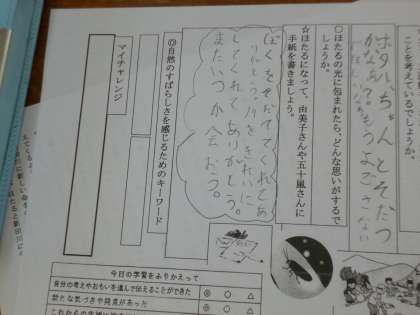 ことを考えているでしょうか。
ホタルちゃんとそだつ
かなあ？もうよごさない
○ほたるの光に包まれたら、どんな思いがするで
しょうか。
☆ほたるになって、由美子さんや五十嵐さんに
手紙を書きましょう。
ぼくをそだててくれてあ
りがとう。川をきれいに
してくれてありがとう。
またいつか会おう。
◎自然のすばらしさを感じるためのキーワード
マイチャレンジ
今日の学習をふりかえって
自分の考えやおもいを進んで伝えることができた
◎ ○ △
新たな気づきや発見があった
◎ ○ △